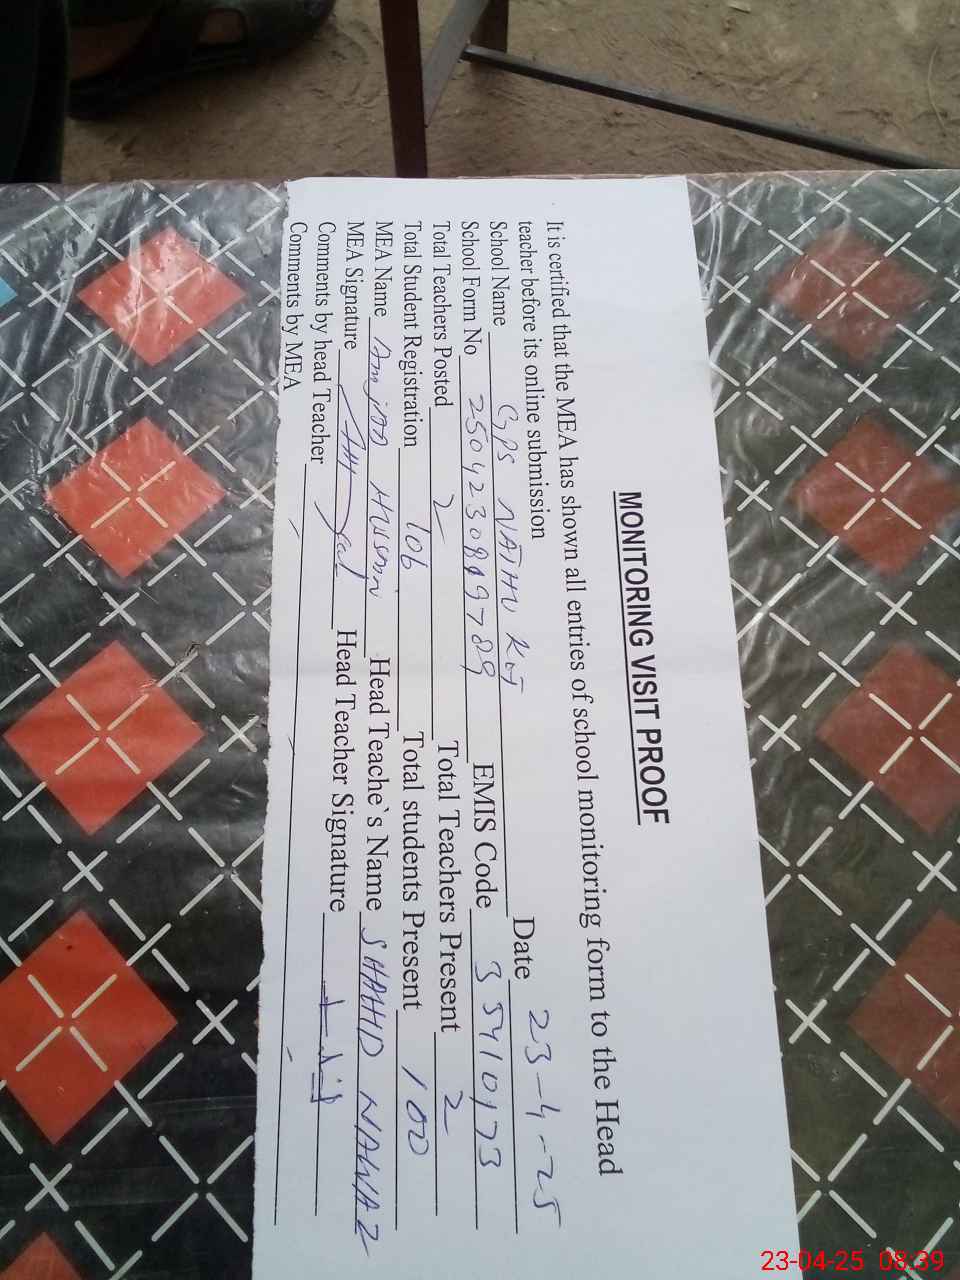 MONITORING VISIT PROOF
It is certified that the MEA has shown all entries of school monitoring form to the Head
teacher before its online submission
School Name GPS NATHU Kot Date 23-4-25
School Form No EMIS Code 35410173
Total Teachers Posted 2 Total Teachers Present 2
Total Student Registration 106 Total students Present 100
MEA Name Amjad Husain Head Teache`s Name SHAHID NAWAZ
MEA Signature Head Teacher Signature
Comments by head Teacher
Comments by MEA
23-04-25 08:39